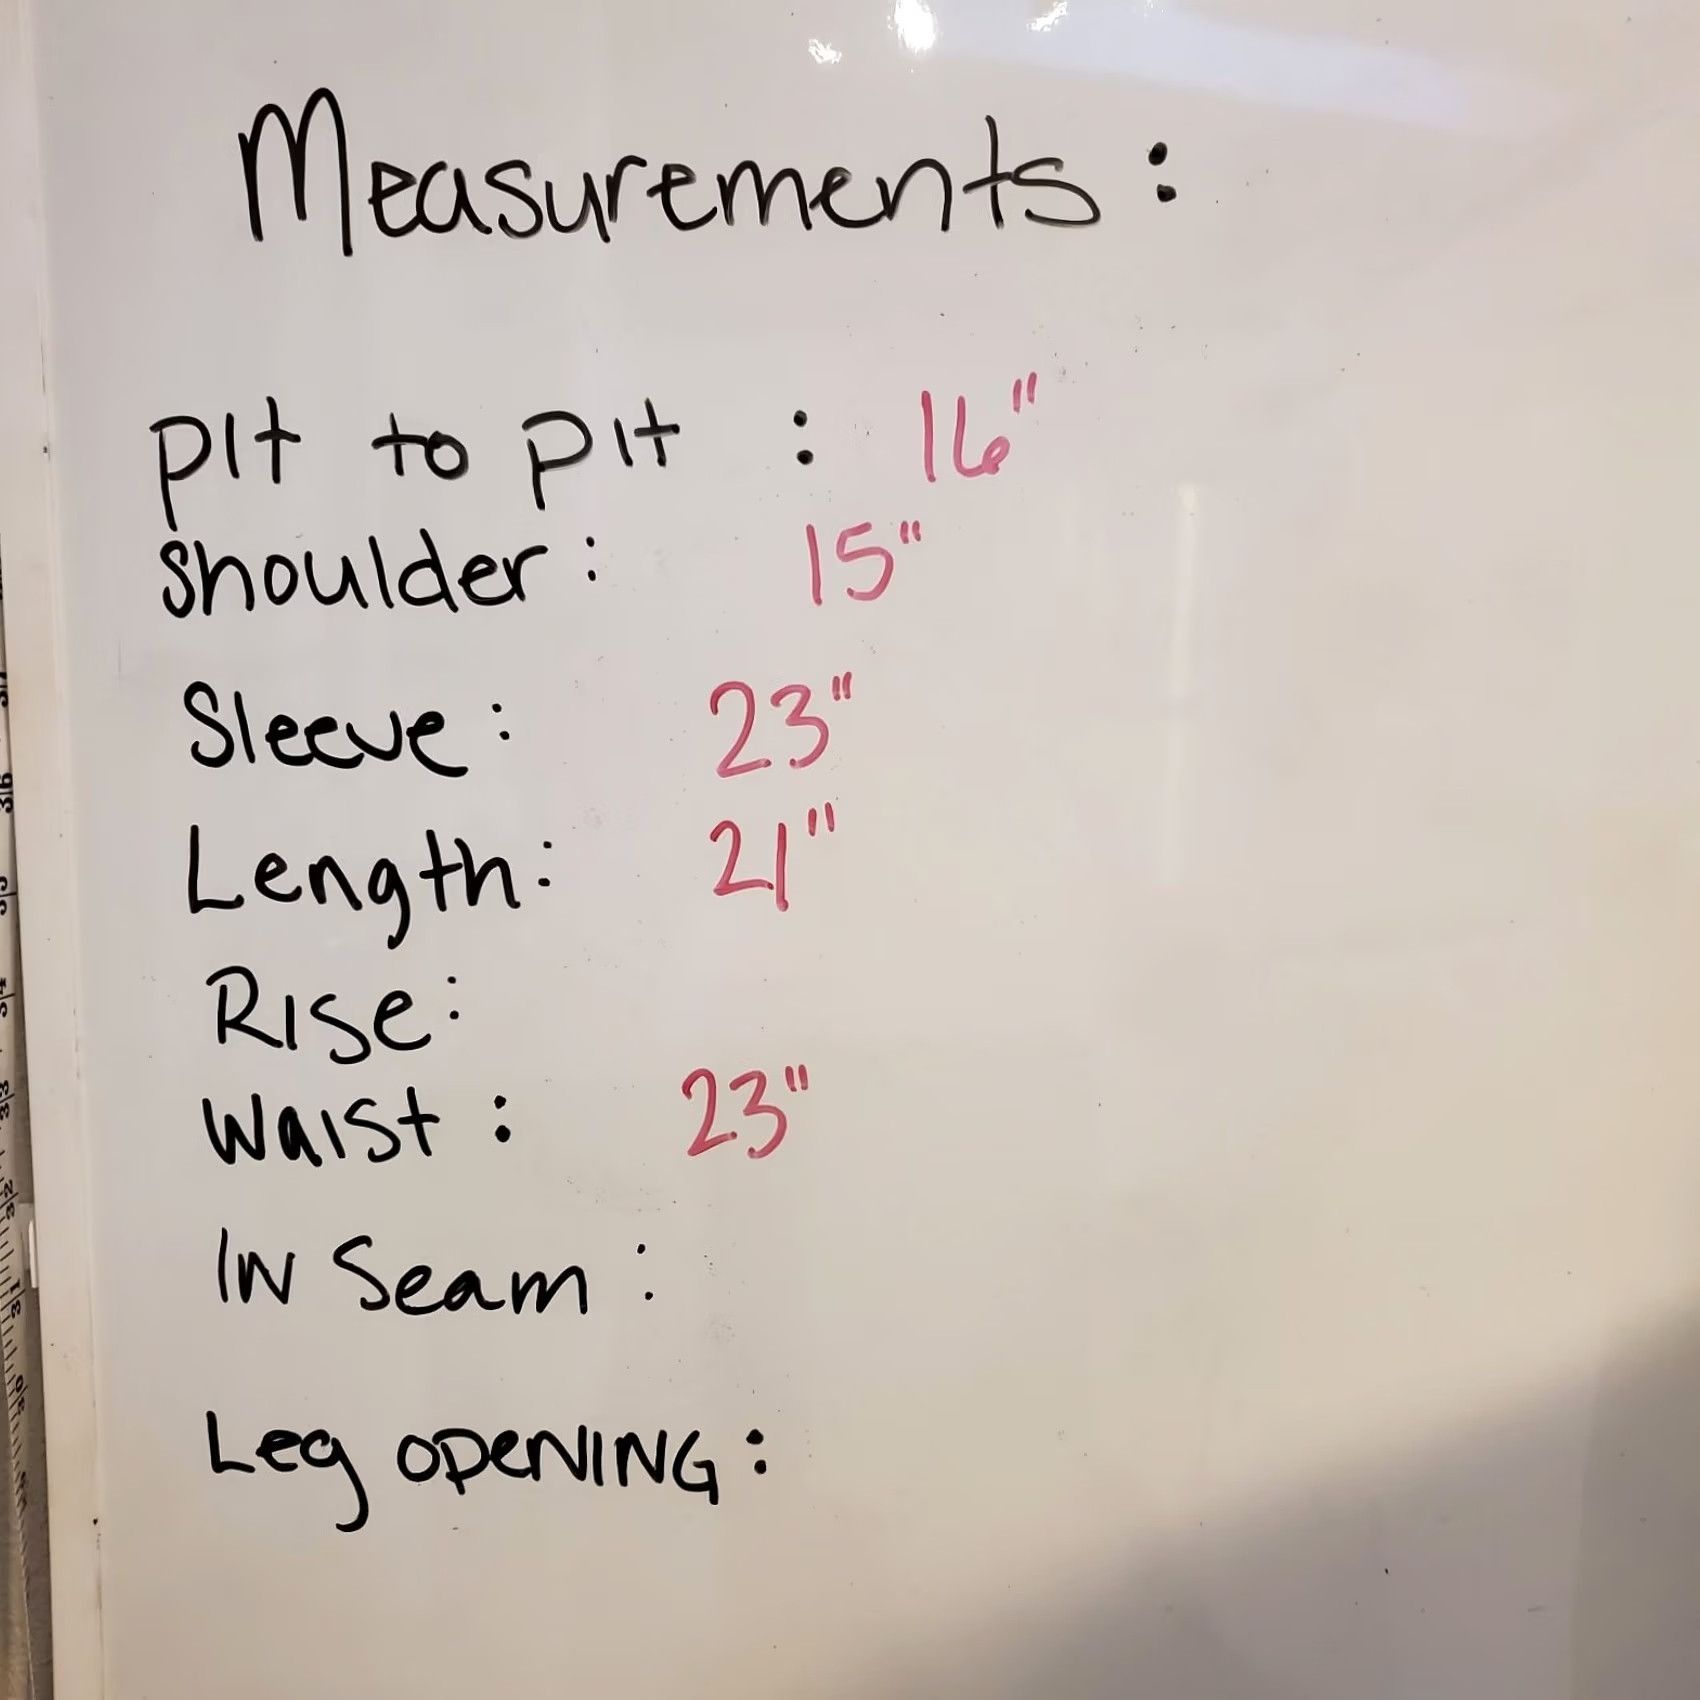 Measurements:
pit to pit : 16"
shoulder: 15"
Sleeve: 23"
Length: 21"
Rise:
Waist: 23"
IN Seam:
Leg OPENING:
37
36
35
34
33
32
31
30